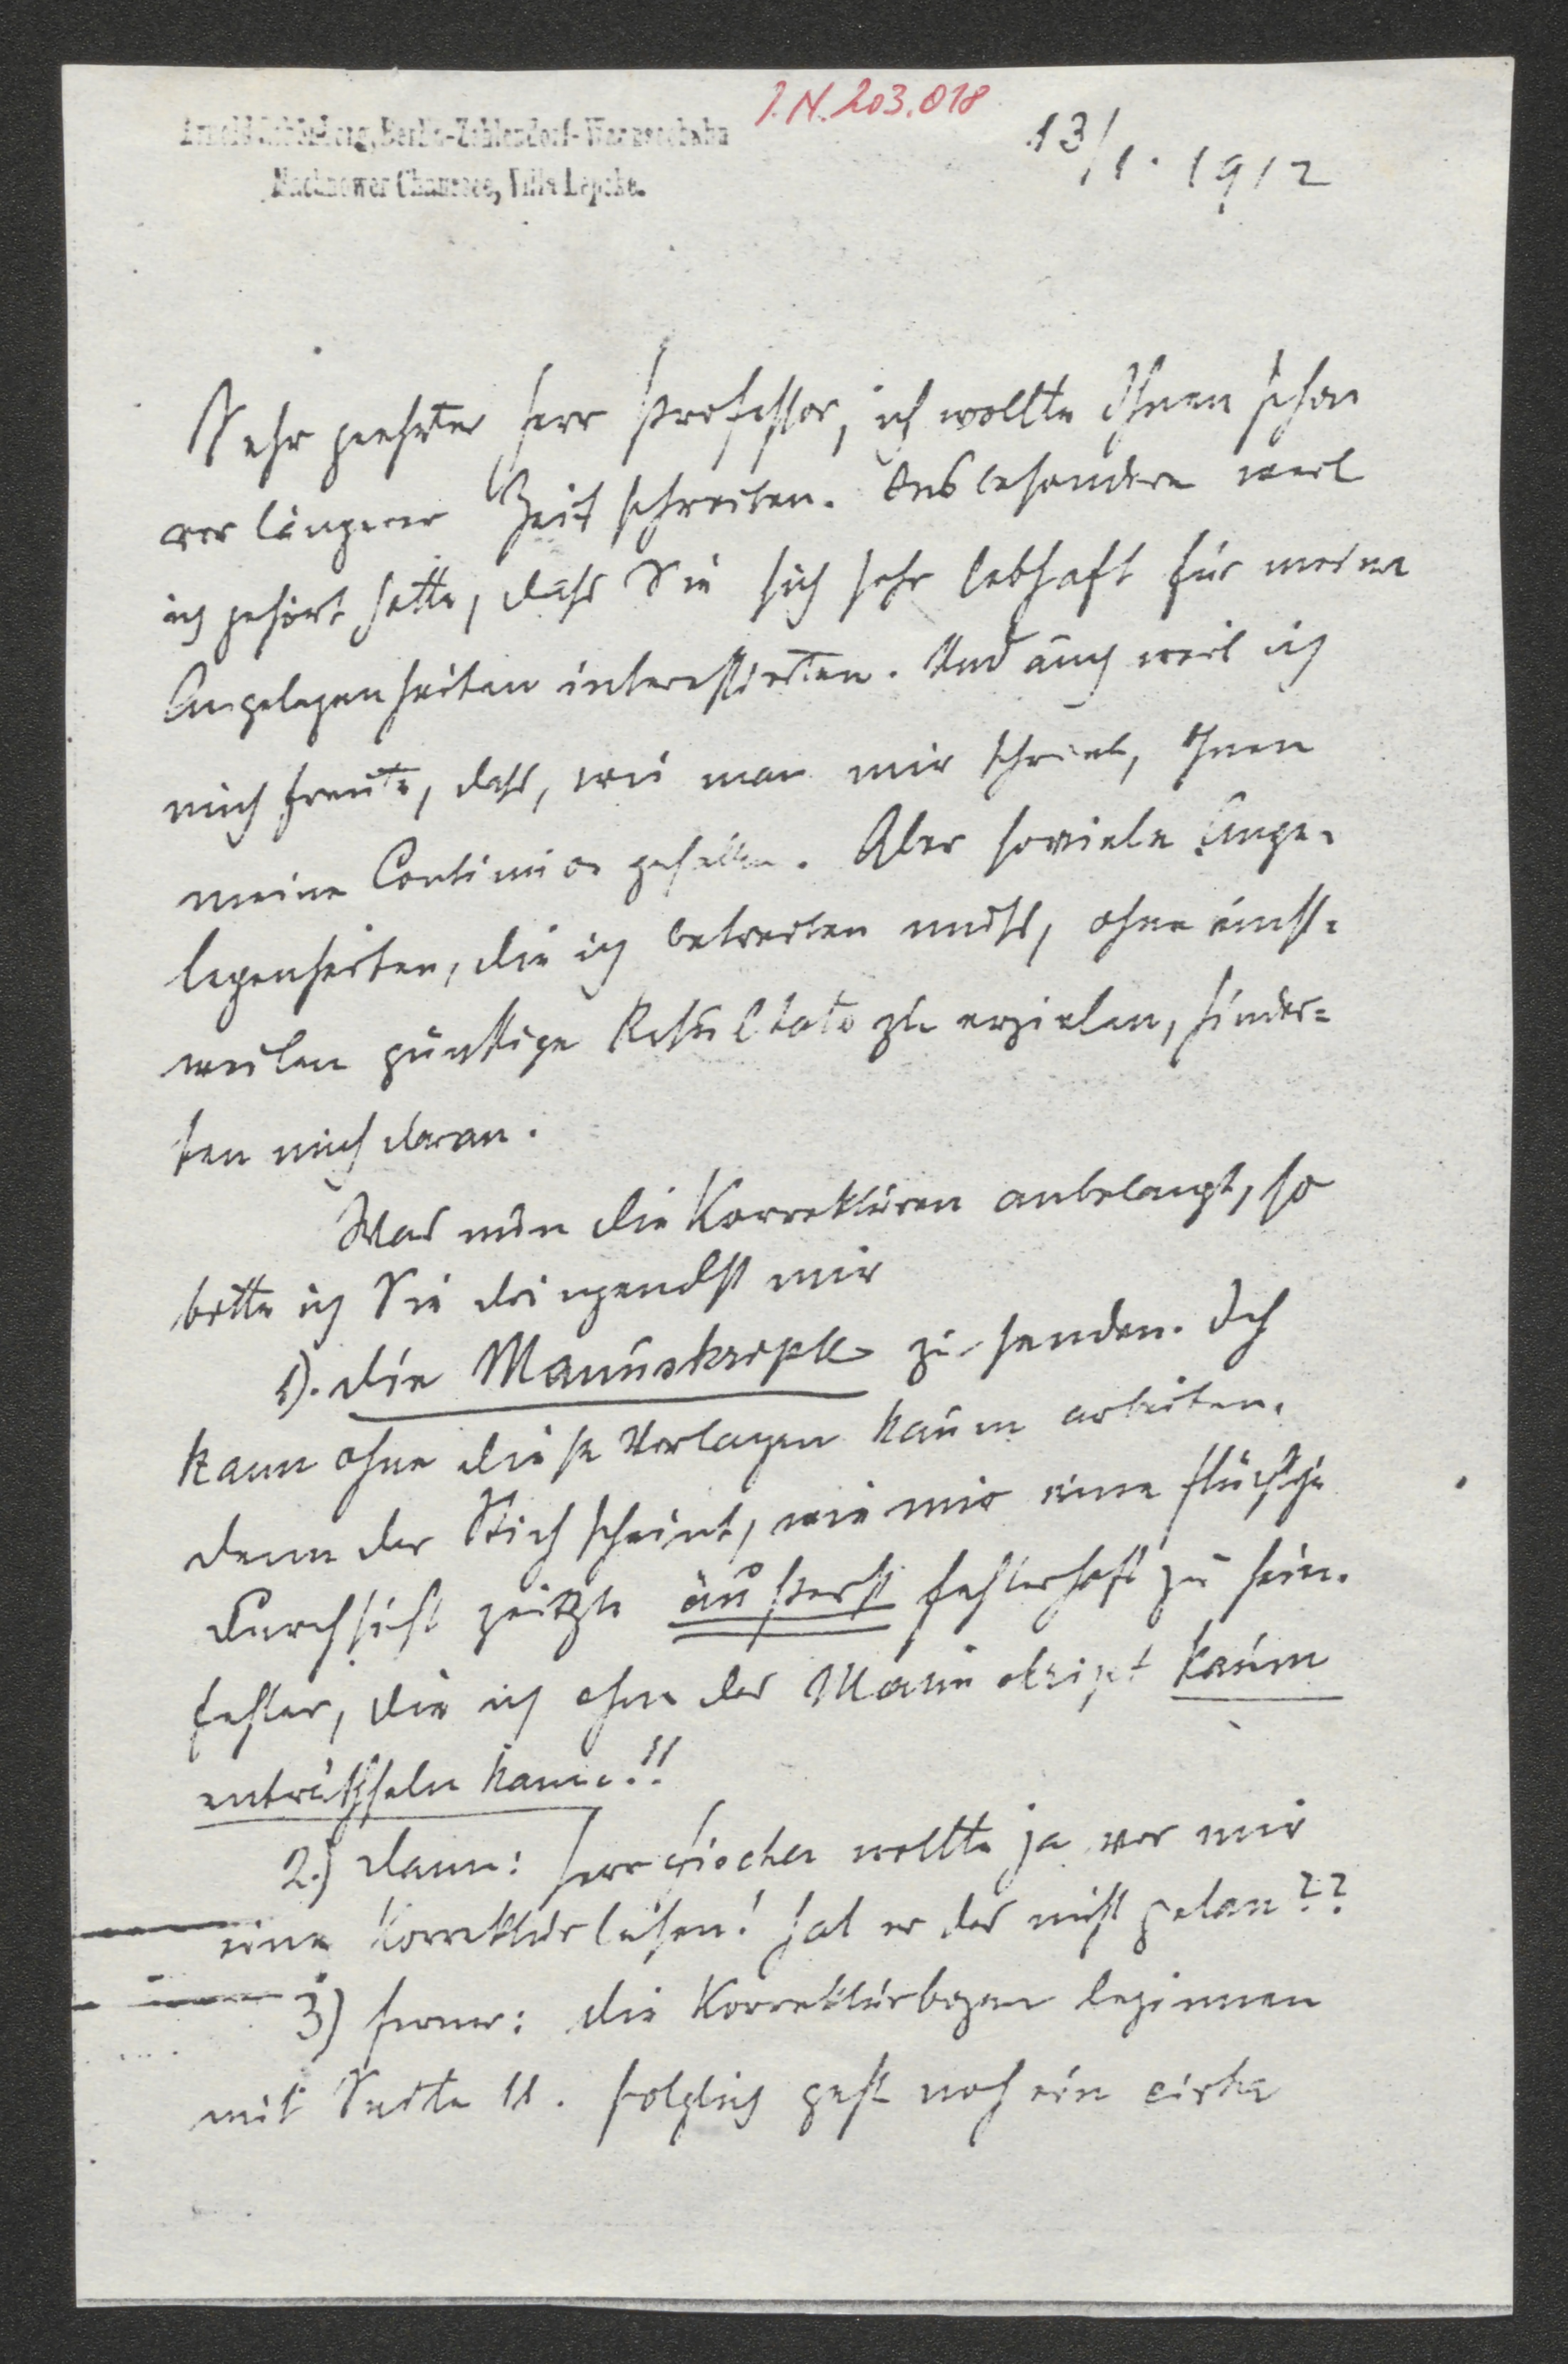 J.N. 203.018
Arnold Schönberg, Berlin-Zehlendorf-Wannseebahn
Machnower Chaussee, Villa Lepcke.
13/1. 1912
Sehr geehrter Herr Professor, ich wollte Ihnen schon
vor längerer Zeit schreiben. Insbesondere weil
ich gehört hatte, dass Sie sich sehr lebhaft für meine
Angelegenheiten interessierten. Und auch weil ich
mich freute, dass, wie man mir schrieb, Ihnen
meine Continuos gefallen. Aber soviele Ange-
legenheiten, die ich betreiben muss, ohne einst-
weilen günstige Resultate zu erzielen, hinder=
ten mich daran.
Was nun die Korrekturen anbelangt, so
bitte ich Sie dringendst mir
1). die Manuskripte zu senden. Ich
kann ohne diese Vorlagen kaum arbeiten.
denn der Stich scheint, wie mir eine flüchtige
Durchsicht zeigte äusserst fehlerhaft zu sein.
Fehler, die ich ohne das Manuskript kaum
enträthseln kann!!
2.) dann: Herr Fischer wollte ja vor mir
eine Korrektur lesen! hat er das nicht getan??
3) ferner: die Korrekturbogen beginnen
mit Seite 11. folglich geht noch ein cirka